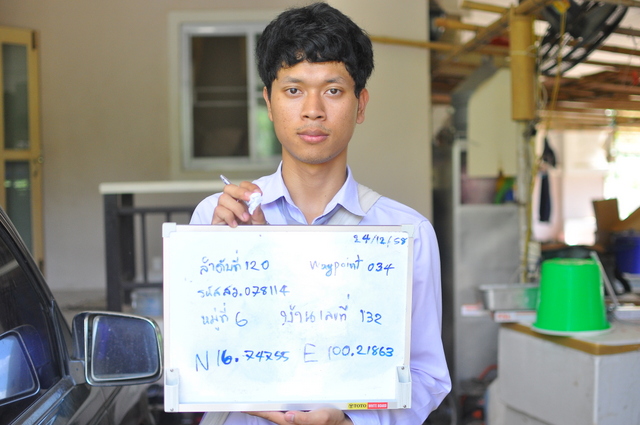 24/12/58
ลำดับที่ 120 Waypoint 034
รหัส สว.078114
หมู่ที่ 6 บ้านเลขที่ 132
N 16.74755 E 100.21863